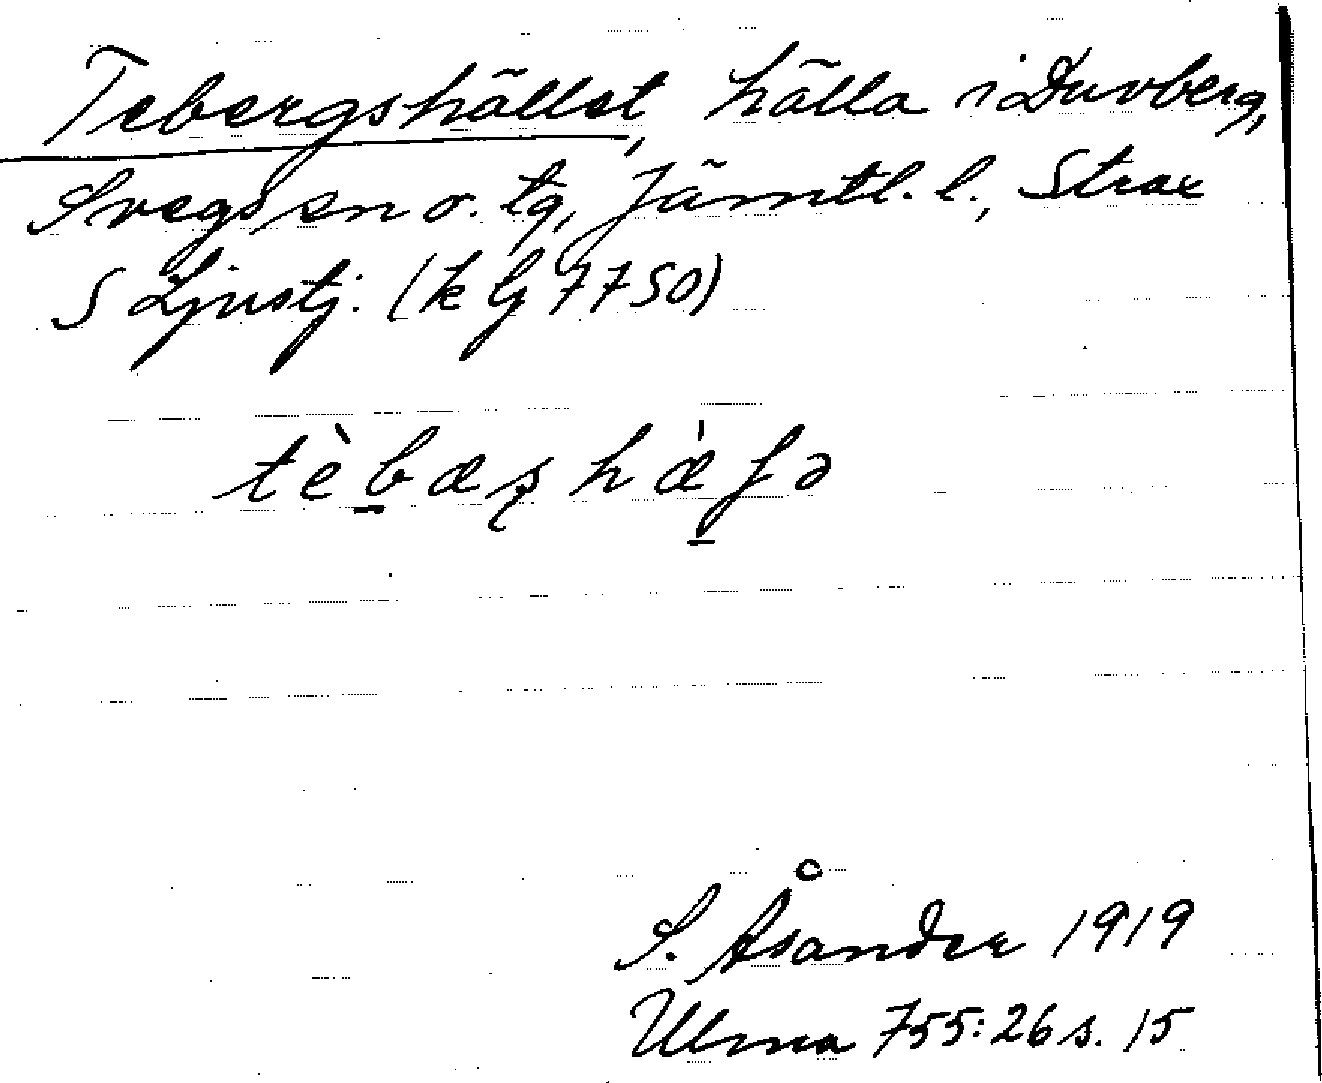 Tebergshället, hälla i Duvberg,
Svegs sn o. tg, Jämtl. l., Strax
S Ljustj. (k Lj 7750)
tèbæʂhæ̀ſə
S. Åsander 1919
Ulma 755:26 s. 15